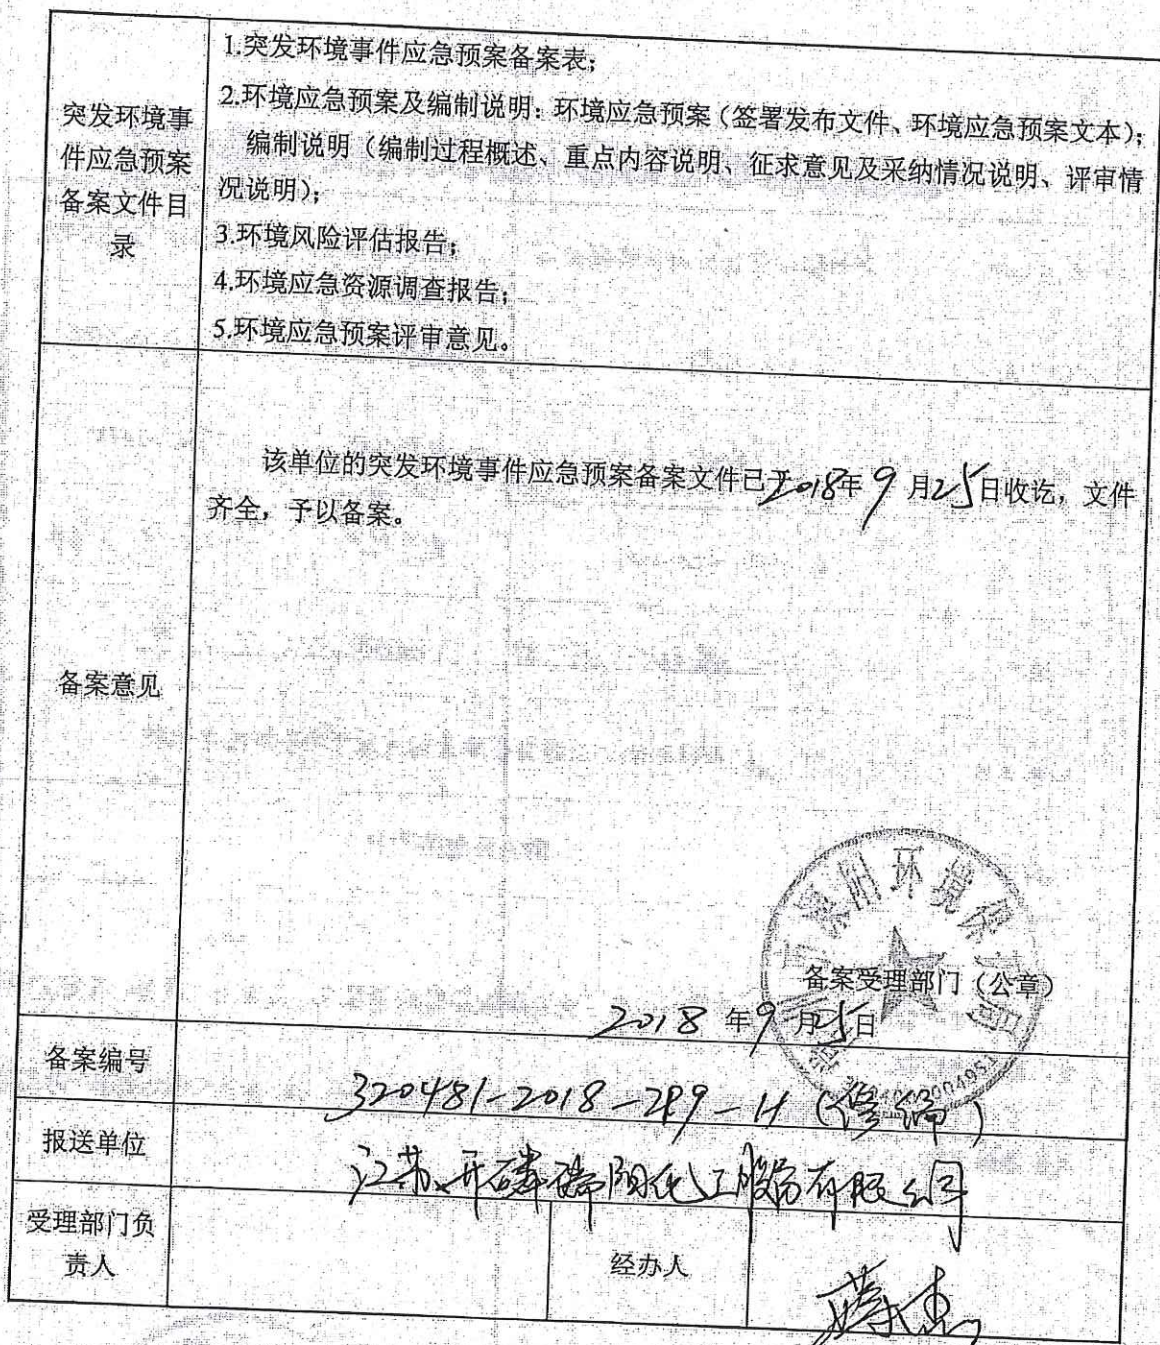 突发环境事
件应急预案
备案文件目
录
1.突发环境事件应急预案备案表;
2.环境应急预案及编制说明: 环境应急预案（签署发布文件、环境应急预案文本）;
编制说明（编制过程概述、重点内容说明、征求意见及采纳情况说明、评审情
况说明）;
3.环境风险评估报告;
4.环境应急资源调查报告;
5.环境应急预案评审意见。
备案意见
该单位的突发环境事件应急预案备案文件已于2018年9月25日收讫，文件
齐全，予以备案。
溧阳环境保
备案受理部门（公章）
2018年9月25日
备案编号
320481-2018-289-H（修编）
报送单位
江苏开磷瑞阳化工股份有限公司
受理部门负
责人
经办人